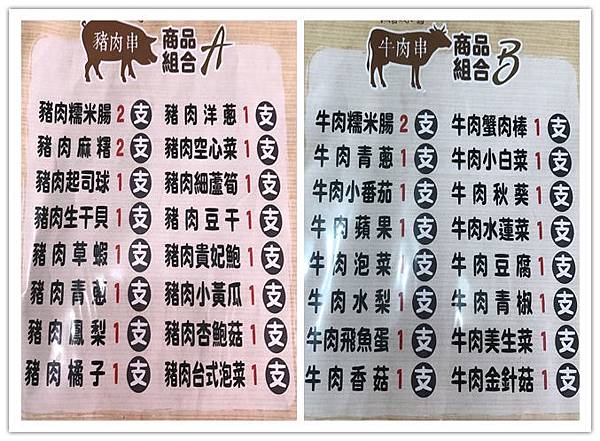 豬肉串
商品組合A
豬肉糯米腸2支
豬肉麻糬2支
豬肉起司球1支
豬肉生干貝1支
豬肉草蝦1支
豬肉青蔥1支
豬肉鳳梨1支
豬肉橘子1支
豬肉洋蔥1支
豬肉空心菜1支
豬肉細蘆筍1支
豬肉豆干1支
豬肉貴妃鮑1支
豬肉小黃瓜1支
豬肉杏鮑菇1支
豬肉台式泡菜1支
牛肉串
商品組合B
牛肉糯米腸2支
牛肉青蔥1支
牛肉小番茄1支
牛肉蘋果1支
牛肉泡菜1支
牛肉水梨1支
牛肉飛魚蛋1支
牛肉香菇1支
牛肉蟹肉棒1支
牛肉小白菜1支
牛肉秋葵1支
牛肉水蓮菜1支
牛肉豆腐1支
牛肉青椒1支
牛肉美生菜1支
牛肉金針菇1支